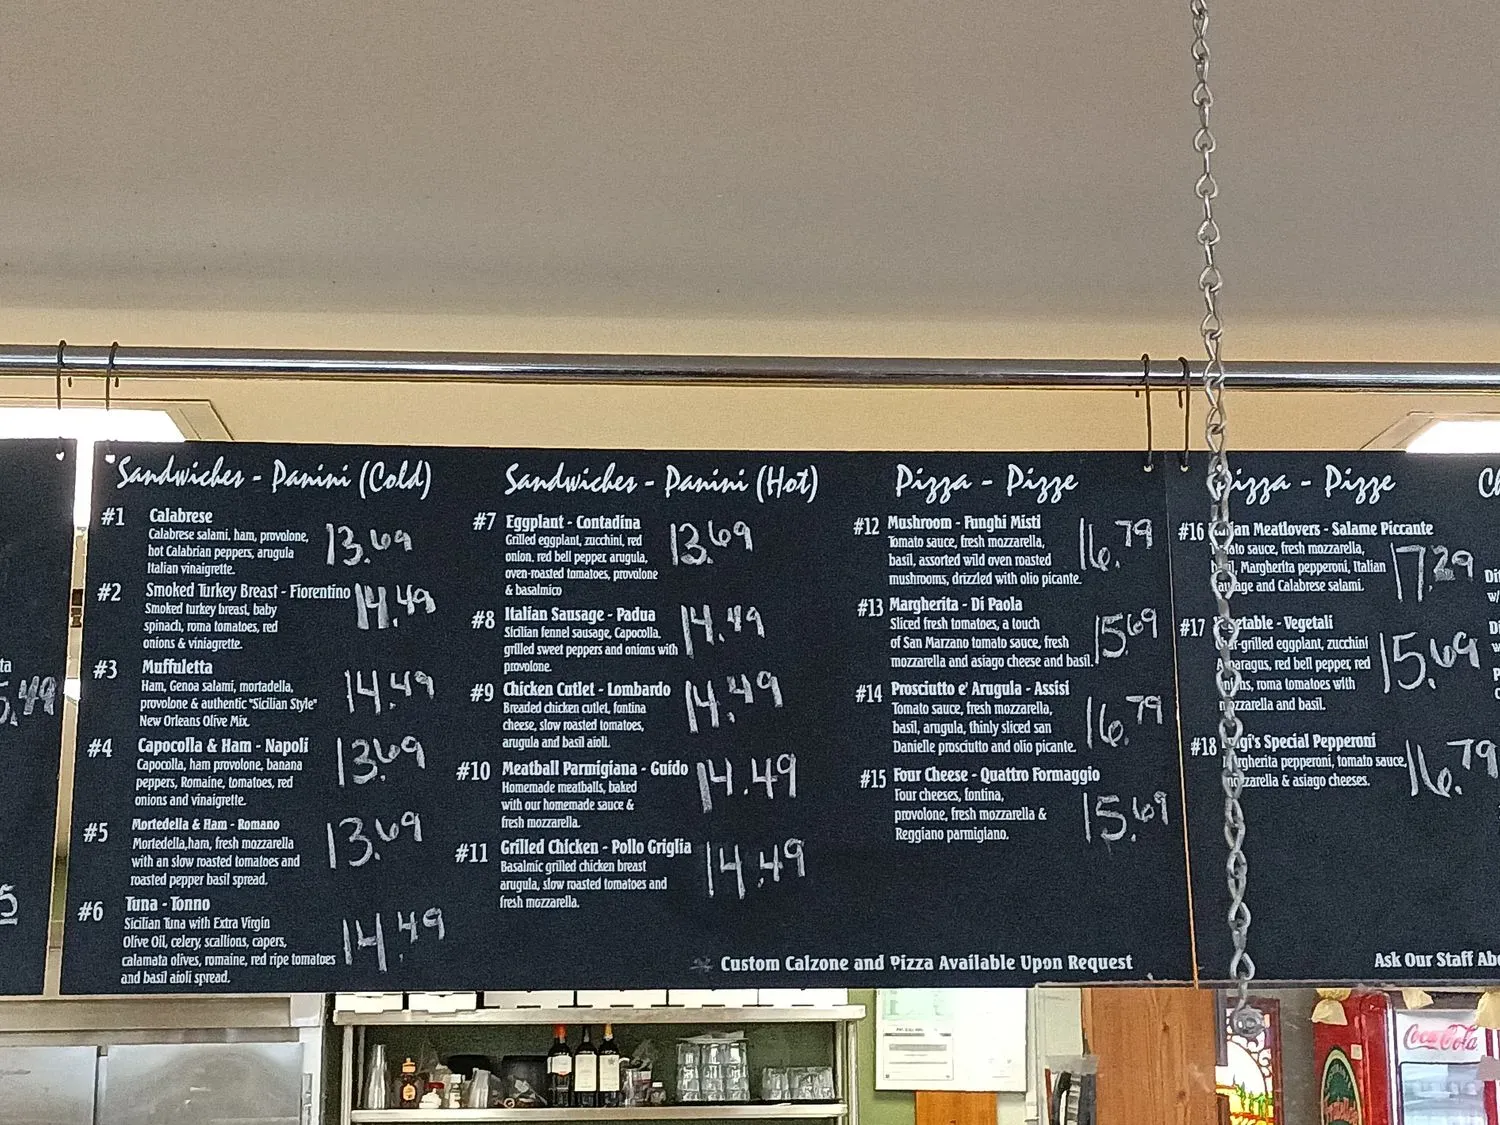 ta
5.49
5
Sandwiches - Panini (Cold)
#1 Calabrese
Calabrese salami, ham, provolone,
hot Calabrian peppers, arugula
Italian vinaigrette.
13.69
#2 Smoked Turkey Breast - Fiorentino
Smoked turkey breast, baby
spinach, roma tomatoes, red
onions & viniagrette.
14.49
#3 Muffuletta
Ham, Genoa salami, mortadella,
provolone & authentic "Sicilian Style"
New Orleans Olive Mix.
14.49
#4 Capocolla & Ham - Napoli
Capocolla, ham provolone, banana
peppers, Romaine, tomatoes, red
onions and vinaigrette.
13.69
#5 Mortedella & Ham - Romano
Mortedella,ham, fresh mozzarella
with an slow roasted tomatoes and
roasted pepper basil spread.
13.69
#6 Tuna - Tonno
Sicilian Tuna with Extra Virgin
Olive Oil, celery, scallions, capers,
calamata olives, romaine, red ripe tomatoes
and basil aioli spread.
14.49
Sandwiches - Panini (Hot)
#7 Eggplant - Contadina
Grilled eggplant, zucchini, red
onion, red bell pepper, arugula,
oven-roasted tomatoes, provolone
& basalmico
13.69
#8 Italian Sausage - Padua
Sicilian fennel sausage, Capocolla,
grilled sweet peppers and onions with
provolone.
14.49
#9 Chicken Cutlet - Lombardo
Breaded chicken cutlet, fontina
cheese, slow roasted tomatoes,
arugula and basil aioli.
14.49
#10 Meatball Parmigiana - Guido
Homemade meatballs, baked
with our homemade sauce &
fresh mozzarella.
14.49
#11 Grilled Chicken - Pollo Griglia
Basalmic grilled chicken breast
arugula, slow roasted tomatoes and
fresh mozzarella.
14.49
Pizza - Pizze
#12 Mushroom - Funghi Misti
Tomato sauce, fresh mozzarella,
basil, assorted wild oven roasted
mushrooms, drizzled with olio picante.
16.79
#13 Margherita - Di Paola
Sliced fresh tomatoes, a touch
of San Marzano tomato sauce, fresh
mozzarella and asiago cheese and basil.
15.69
#14 Prosciutto e' Arugula - Assisi
Tomato sauce, fresh mozzarella,
basil, arugula, thinly sliced san
Danielle prosciutto and olio picante.
16.79
#15 Four Cheese - Quattro Formaggio
Four cheeses, fontina,
provolone, fresh mozzarella &
Reggiano parmigiano.
15.69
Custom Calzone and Pizza Available Upon Request
Pizza - Pizze
#16 Italian Meatlovers - Salame Piccante
Tomato sauce, fresh mozzarella,
basil, Margherita pepperoni, Italian
sausage and Calabrese salami.
17.29
#17 Vegetable - Vegetali
Char-grilled eggplant, zucchini
Asparagus, red bell pepper, red
onions, roma tomatoes with
mozzarella and basil.
15.69
#18 Luigi's Special Pepperoni
Margherita pepperoni, tomato sauce,
mozzarella & asiago cheeses.
16.79
Ask Our Staff Abo
Ch
Dit
w/
Di
w
Coca-Cola